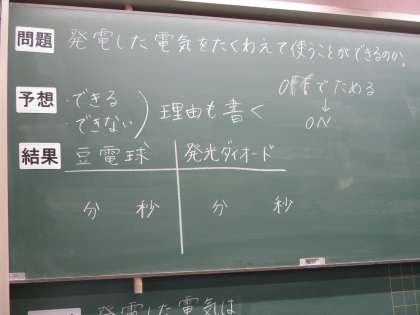 問題 発電した電気をたくわえて使うことができるのか。
予想 ・できる
・できない
理由も書く
OFFでためる
↓
ON
結果 豆電球 発光ダイオード
分 秒 分 秒
発電した電気は